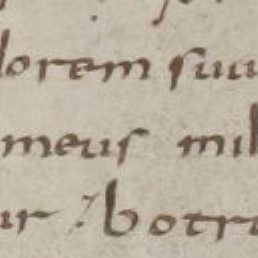 lorem suu
meus mih
ur : botr